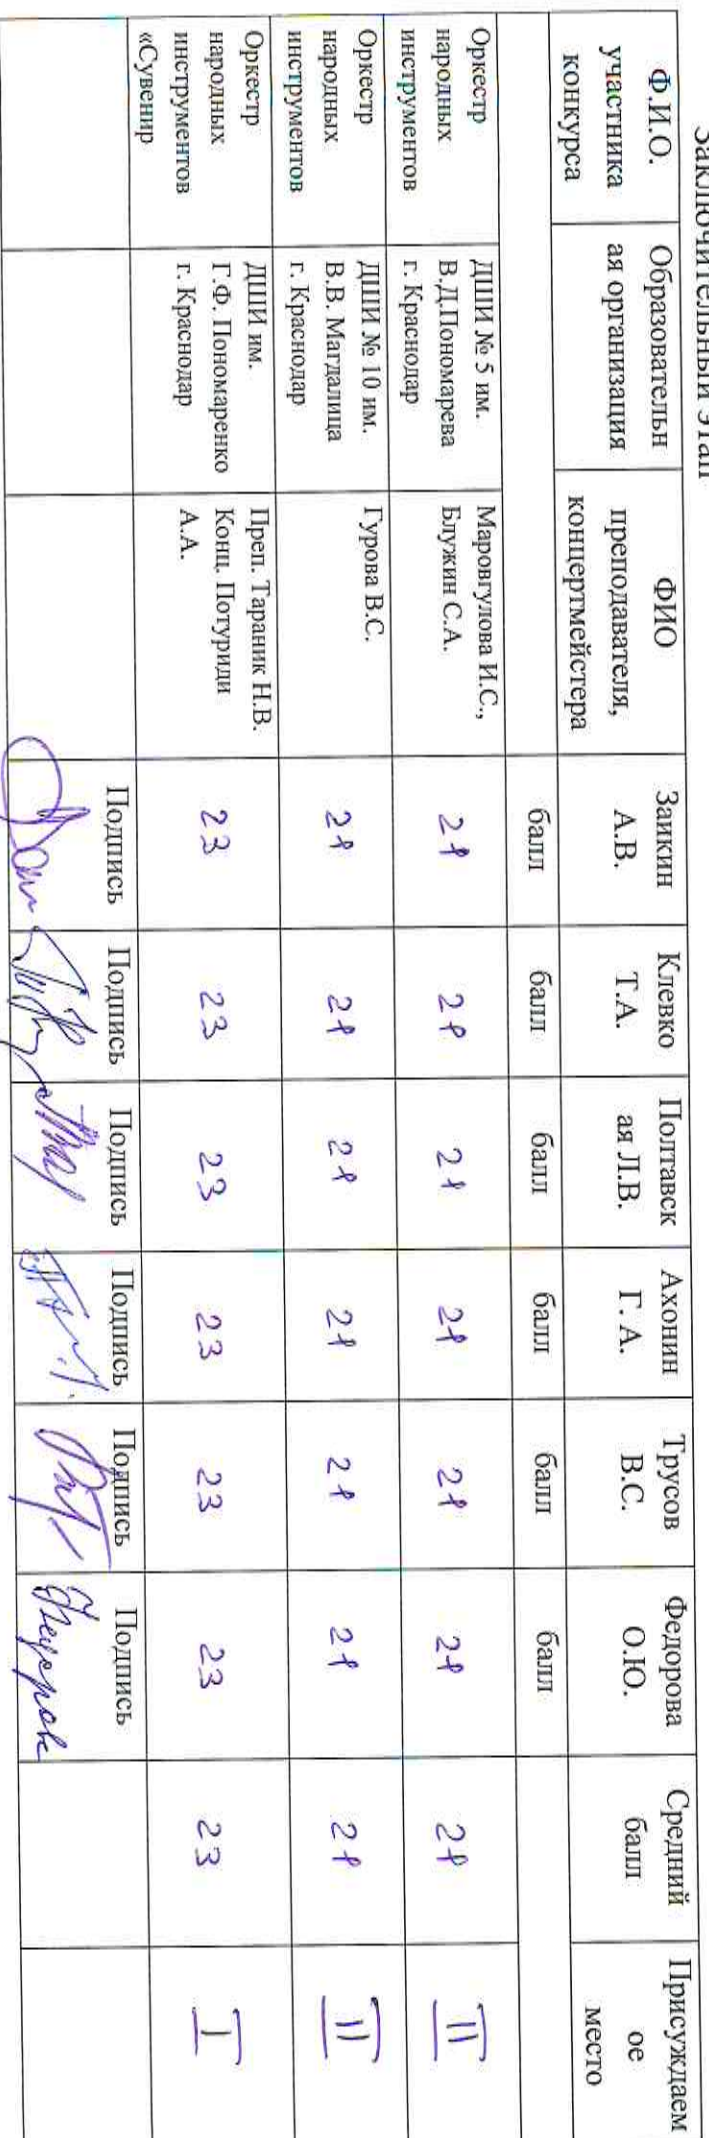 Заключительный этап
Ф.И.О.
участника
конкурса
Образовательн
ая организация
ФИО
преподавателя,
концертмейстера
Заикин
А.В.
Клевко
Т.А.
Полтавск
ая Л.В.
Ахонин
Г. А.
Трусов
В.С.
Федорова
О.Ю.
Средний
балл
Присуждаем
ое
место
балл
балл
балл
балл
балл
балл
Оркестр
народных
инструментов
ДШИ № 5 им.
В.Д.Пономарева
г. Краснодар
Маровгулова И.С.,
Блужин С.А.
21
21
21
21
21
21
21
II
Оркестр
народных
инструментов
ДШИ № 10 им.
В.В. Магдалица
г. Краснодар
Гурова В.С.
21
21
21
21
21
21
21
II
Оркестр
народных
инструментов
«Сувенир
ДШИ им.
Г.Ф. Пономаренко
г. Краснодар
Преп. Тараник Н.В.
Конц. Потуриди
А.А.
23
23
23
23
23
23
23
I
Подпись
Подпись
Подпись
Подпись
Подпись
Подпись